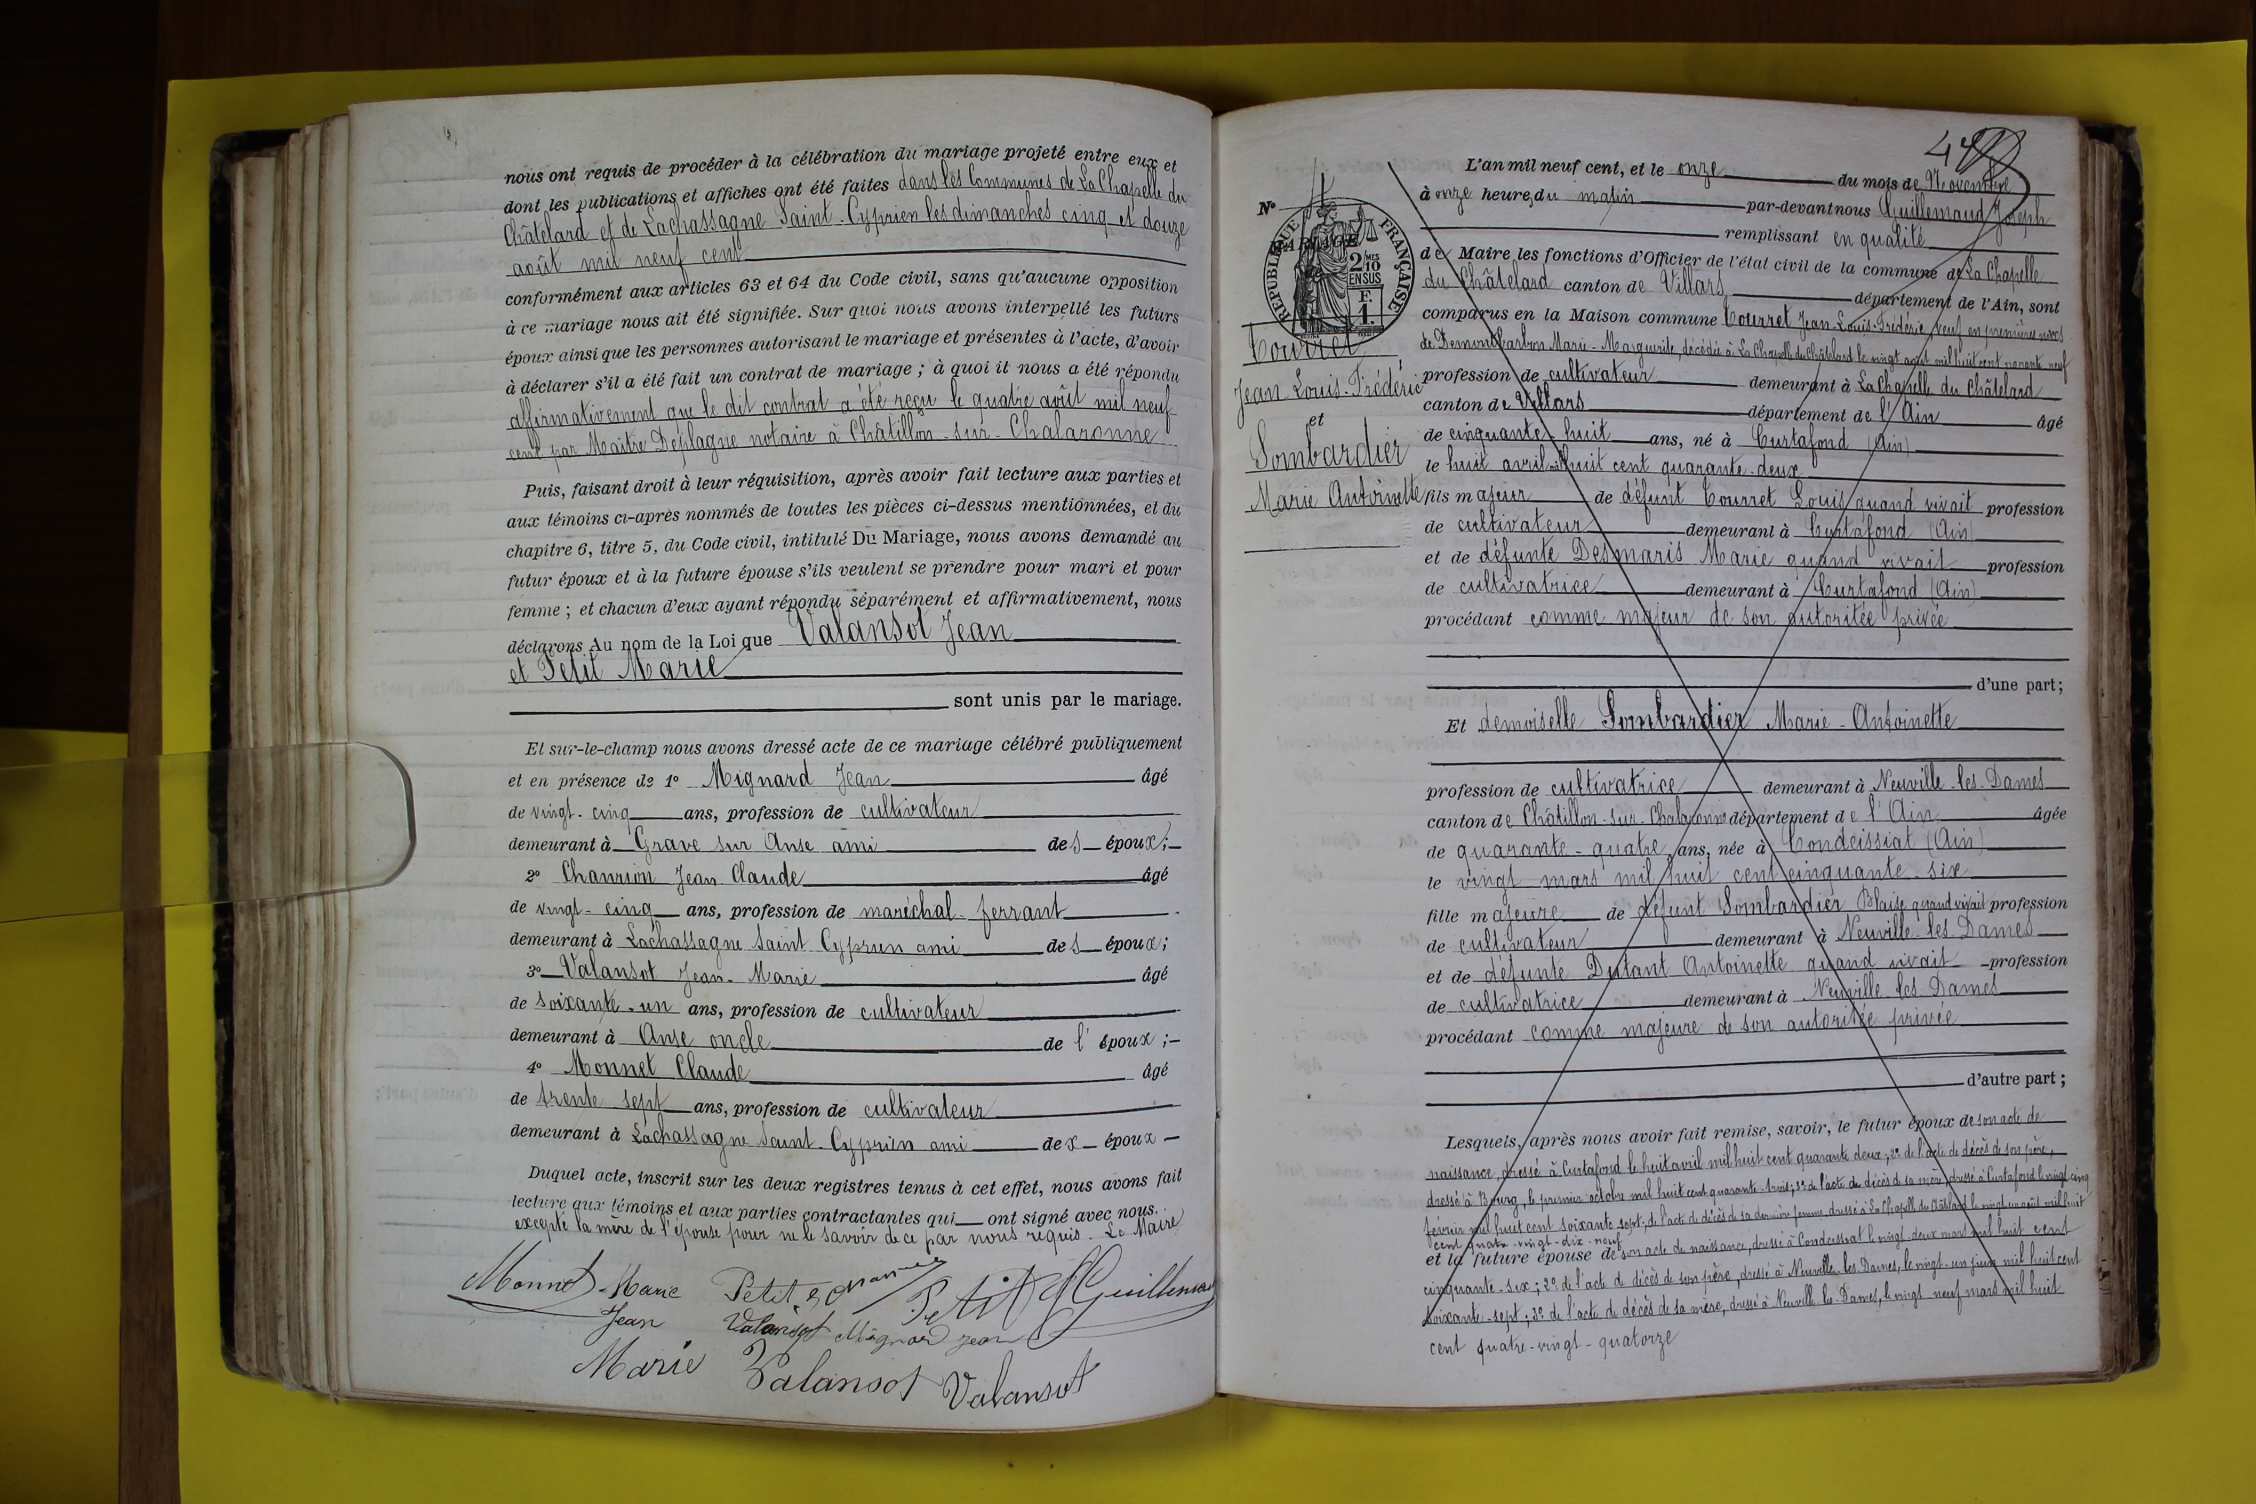 nous ont requis de procéder à la célébration du mariage projeté entre eux et
dont les publications et affiches ont été faites dans les Communes de La Chapelle du
Châtelard et de Lachassagne Saint-Cyprien les dimanches cinq et douze
août mil neuf cent
conformément aux articles 63 et 64 du Code civil, sans qu'aucune opposition
à ce mariage nous ait été signifiée. Sur quoi nous avons interpellé les futurs
époux ainsi que les personnes autorisant le mariage et présentes à l'acte, d'avoir
à déclarer s'il a été fait un contrat de mariage ; à quoi il nous a été répondu
affirmativement que le dit contrat a été reçu le quatre août mil neuf
cent par Maître Déplagne notaire à Châtillon-sur-Chalaronne
Puis, faisant droit à leur réquisition, après avoir fait lecture aux parties et
aux témoins ci-après nommés de toutes les pièces ci-dessus mentionnées, et du
chapitre 6, titre 5, du Code civil, intitulé Du Mariage, nous avons demandé au
futur époux et à la future épouse s'ils veulent se prendre pour mari et pour
femme ; et chacun d'eux ayant répondu séparément et affirmativement, nous
déclarons Au nom de la Loi que Valansot Jean
et Petit Marie
sont unis par le mariage.
Et sur-le-champ nous avons dressé acte de ce mariage célébré publiquement
et en présence de 1° Mignard Jean âgé
de vingt-cinq ans, profession de cultivateur
demeurant à Grave sur Anse ami des époux ;
2° Chanrion Jean Claude âgé
de vingt-cinq ans, profession de maréchal-ferrant
demeurant à Lachassagne Saint-Cyprien ami des époux ;
3° Valansot Jean-Marie âgé
de soixante-un ans, profession de cultivateur
demeurant à Anse oncle de l'époux ;
4° Monnet Claude âgé
de trente sept ans, profession de cultivateur
demeurant à Lachassagne Saint-Cyprien ami dex époux
Duquel acte, inscrit sur les deux registres tenus à cet effet, nous avons fait
lecture aux témoins et aux parties contractantes qui ont signé avec nous.
excepté la mère de l'épouse pour ne le savoir de ce par nous requis. Le Maire
Monnet Marie Petit Petit Guillemaud
Jean Valansot Mignard Jean
Marie Valansot Valansot
L'an mil neuf cent, et le onze du mois de Novembre
à onze heures du matin par-devant nous Guillemaud Joseph
remplissant en qualité
de Maire les fonctions d'Officier de l'état civil de la commune de La Chapelle
du Châtelard canton de Villars département de l'Ain, sont
comparus en la Maison commune Tourret Jean-Louis-Frédéric, veuf en premières noces
de Demontbarbon Marie-Marguerite, décédée à La Chapelle du Châtelard le vingt août mil huit cent nonante neuf
profession de cultivateur demeurant à La Chapelle du Châtelard
canton de Villars département de l'Ain âgé
de cinquante-huit ans, né à Curtafond (Ain)
le huit avril mil huit cent quarante-deux
fils majeur de défunt Tourret Louis quand vivait profession
de cultivateur demeurant à Curtafond (Ain)
et de défunte Desmaris Marie quand vivait profession
de cultivatrice demeurant à Curtafond (Ain)
procédant comme majeur de son autoritée privée
d'une part ;
Et demoiselle Lombardier Marie-Antoinette
profession de cultivatrice demeurant à Neuville-les-Dames
canton de Châtillon-sur-Chalaronne département de l'Ain âgée
de quarante-quatre ans, née à Condeissiat (Ain)
le vingt mars mil huit cent cinquante-six
fille majeure de défunt Lombardier Blaise quand vivait profession
de cultivateur demeurant à Neuville-les-Dames
et de défunte Dutant Antoinette quand vivait profession
de cultivatrice demeurant à Neuville-les-Dames
procédant comme majeure de son autoritée privée
d'autre part ;
Lesquels, après nous avoir fait remise, savoir, le futur époux de son acte de
naissance, dressé à Curtafond le huit avril mil huit cent quarante deux ; 2° de l'acte de décès de son père,
dressé à Bourg, le premier octobre mil huit cent quarante-trois ; 3° de l'acte de décès de sa mère dressé à Curtafond le vingt cinq
février mil huit cent soixante sept ; de l'acte de décès de sa dernière femme, dressé à La Chapelle du Châtelard le vingt un août mil huit
cent quatre-vingt-dix-neuf
et la future épouse de son acte de naissance, dressé à Condeissiat le vingt-deux mars mil huit cent
cinquante-six ; 2° de l'acte de décès de son père, dressé à Neuville-les-Dames, le vingt-un juin mil huit cent
soixante-sept ; 3° de l'acte de décès de sa mère, dressé à Neuville-les-Dames, le vingt-neuf mars mil huit
cent quatre-vingt-quatorze
N°
MARIAGE
RÉPUBLIQUE FRANÇAISE
2 MES
10
EN SUS
F.
1.
Tourret
Jean Louis-Frédéric
et
Lombardier
Marie Antoinette